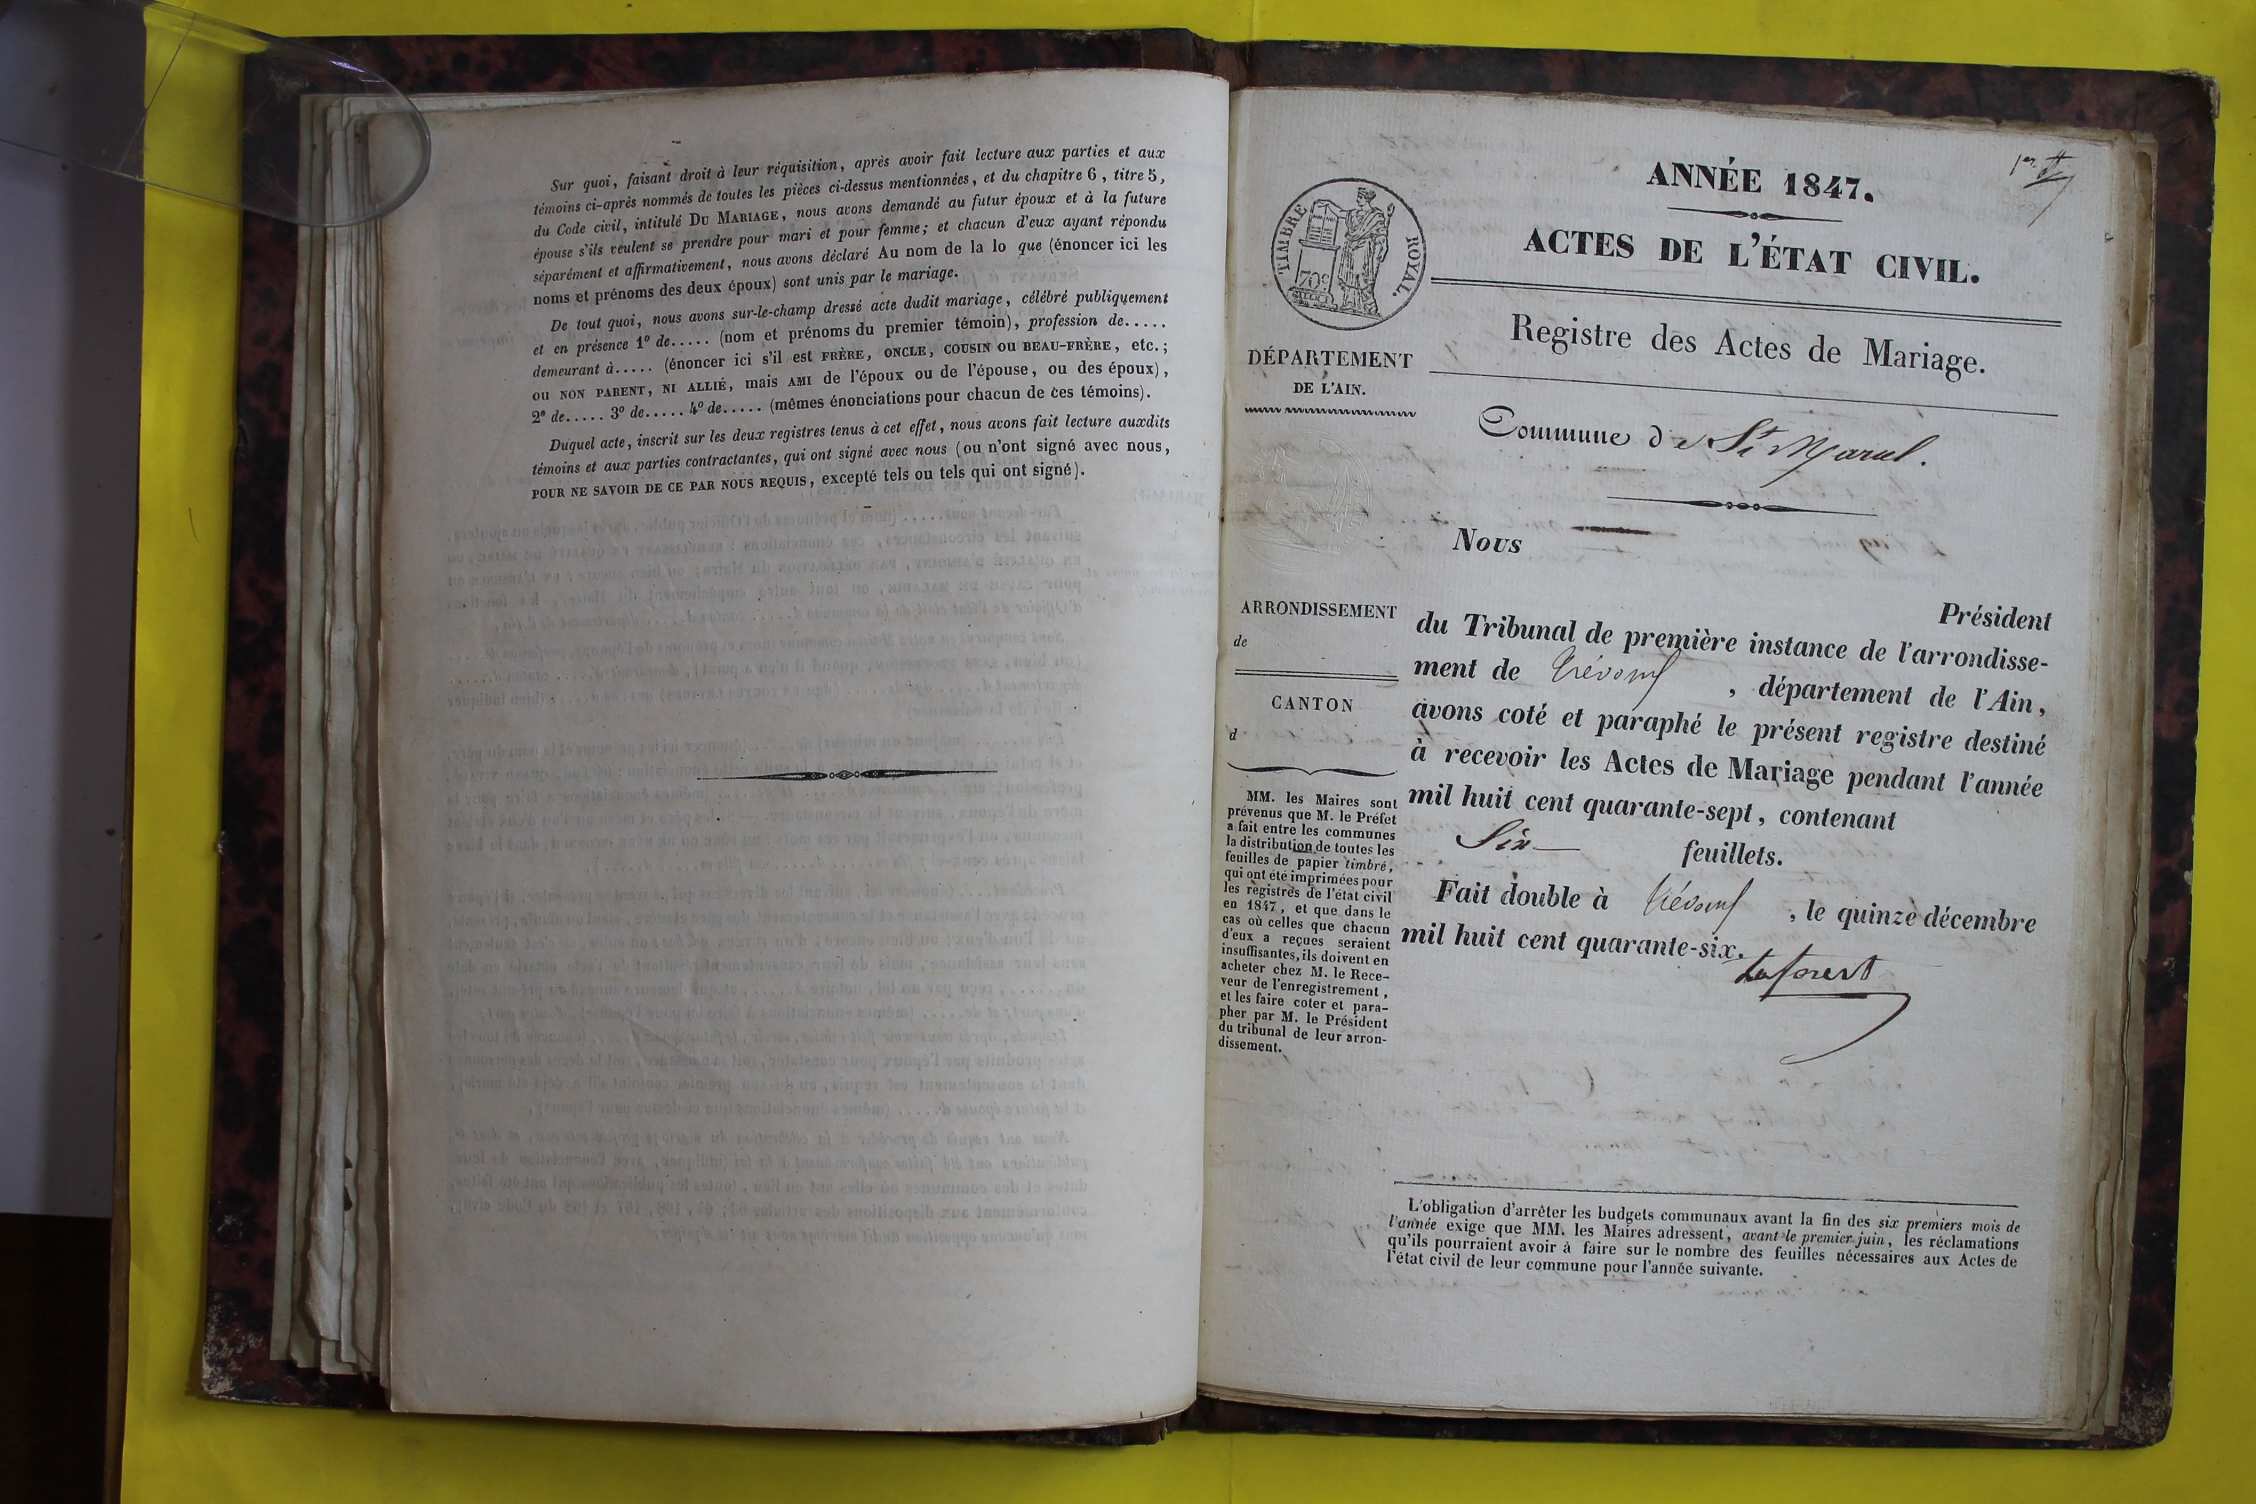 Sur quoi, faisant droit à leur réquisition, après avoir fait lecture aux parties et aux
témoins ci-après nommés de toutes les pièces ci-dessus mentionnées, et du chapitre 6, titre 5,
du Code civil, intitulé DU MARIAGE, nous avons demandé au futur époux et à la future
épouse s'ils veulent se prendre pour mari et pour femme; et chacun d'eux ayant répondu
séparément et affirmativement, nous avons déclaré Au nom de la lo que (énoncer ici les
noms et prénoms des deux époux) sont unis par le mariage.
De tout quoi, nous avons sur-le-champ dressé acte dudit mariage, célébré publiquement
et en présence 1º de..... (nom et prénoms du premier témoin), profession de.....
demeurant à..... (énoncer ici s'il est FRÈRE, ONCLE, COUSIN OU BEAU-FRÈRE, etc.;
OU NON PARENT, NI ALLIÉ, mais AMI de l'époux ou de l'épouse, ou des époux),
2º de..... 3º de..... 4º de..... (mêmes énonciations pour chacun de ces témoins).
Duquel acte, inscrit sur les deux registres tenus à cet effet, nous avons fait lecture auxdits
témoins et aux parties contractantes, qui ont signé avec nous (ou n'ont signé avec nous,
POUR NE SAVOIR DE CE PAR NOUS REQUIS, excepté tels ou tels qui ont signé).
1er
ANNÉE 1847.
ACTES DE L'ÉTAT CIVIL.
TIMBRE ROYAL.
70c
Registre des Actes de Mariage.
DÉPARTEMENT
DE L'AIN.
Commune de St Marcel.
Nous
Président
du Tribunal de première instance de l'arrondisse-
ment de Trévoux, département de l'Ain,
avons coté et paraphé le présent registre destiné
à recevoir les Actes de Mariage pendant l'année
mil huit cent quarante-sept, contenant
Six feuillets.
Fait double à Trévoux, le quinze décembre
mil huit cent quarante-six.
Laforest
ARRONDISSEMENT
de
CANTON
d
MM. les Maires sont
prévenus que M. le Préfet
a fait entre les communes
la distribution de toutes les
feuilles de papier timbré,
qui ont été imprimées pour
les registres de l'état civil
en 1847, et que dans le
cas où celles que chacun
d'eux a reçues seraient
insuffisantes, ils doivent en
acheter chez M. le Rece-
veur de l'enregistrement,
et les faire coter et para-
pher par M. le Président
du tribunal de leur arron-
dissement.
L'obligation d'arrêter les budgets communaux avant la fin des six premiers mois de
l'année exige que MM. les Maires adressent, avant le premier juin, les réclamations
qu'ils pourraient avoir à faire sur le nombre des feuilles nécessaires aux Actes de
l'état civil de leur commune pour l'année suivante.